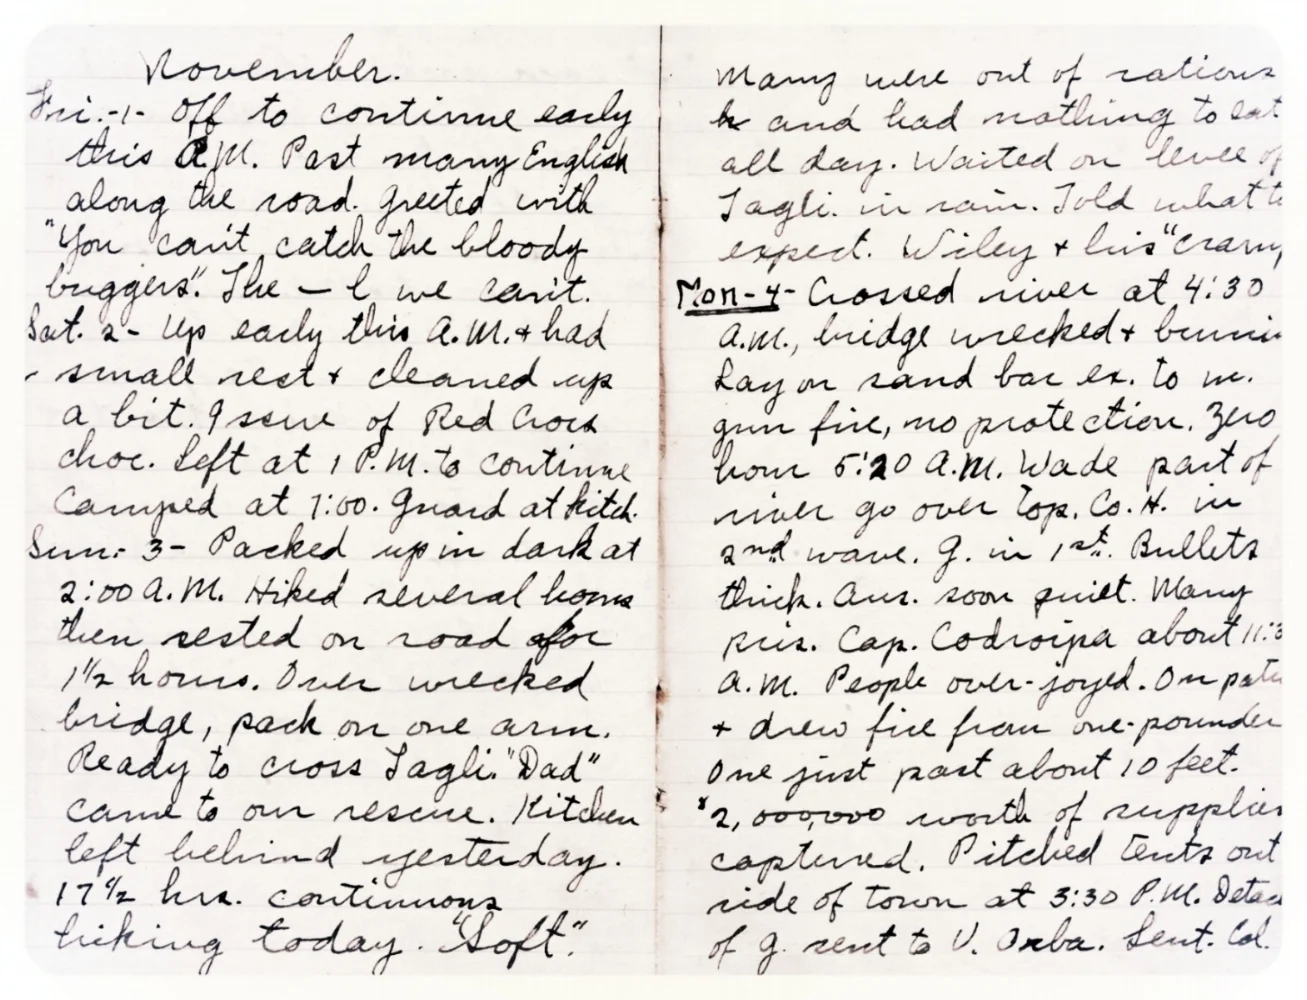 November.
Fri.-1- Off to continue early
this A.M. Past many English
along the road. Greeted with
"You can't catch the bloody
buggers". The — l we can't.
Sat. 2- Up early this A.M. + had
- small rest + cleaned up
a bit. Issue of Red Cross
choc. Left at 1 P.M. to continue
Camped at 7:00. Guard at kitch.
Sun.- 3- Packed up in dark at
2:00 A.M. Hiked several hours
then rested on road for
1½ hours. Over wrecked
bridge, pack on one arm.
Ready to cross Tagli. "Dad"
came to our rescue. Kitchen
left behind yesterday.
17½ hrs. continuous
hiking today. "Soft".
Many were out of rations
and had nothing to eat
all day. Waited on levee of
Tagli. in rain. Told what to
expect. Wiley + his "cramp
Mon-4- Crossed river at 4:30
A.M., bridge wrecked + burnin
Lay on sand bar ex. to m.
gun fire, no protection. Zero
hour 5:20 A.M. Wade part of
river go over top. Co. H. in
2nd wave. G. in 1st. Bullets
thick. Aus. soon quiet. Many
pris. Cap. Codroipa about 11:3
A.M. People over-joyed. On patr
+ drew fire from one-pounder
One just past about 10 feet.
$2,000,000 worth of supplies
captured. Pitched tents out
side of town at 3:30 P.M. Detac
of G. sent to V. Orba. Sent. Col.